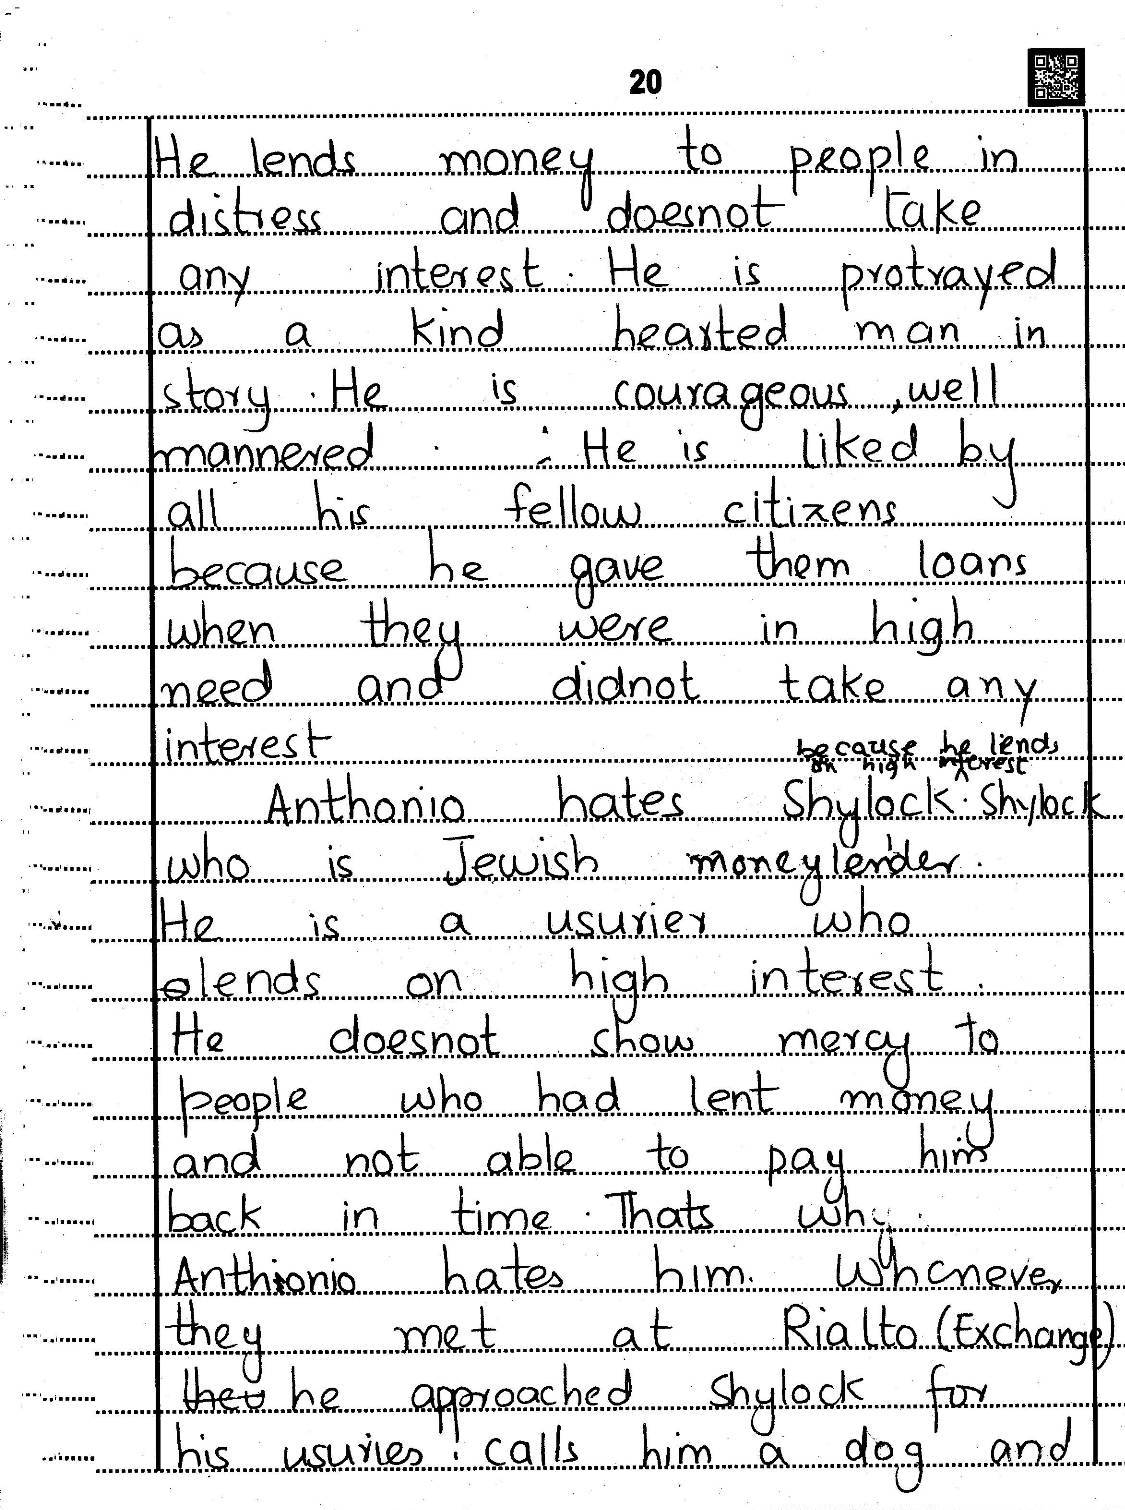 20
He lends money to people in
distress and doesnot take
any interest. He is protrayed
as a kind hearted man in
story. He is courageous, well
mannered. He is liked by
all his fellow citizens
because he gave them loans
when they were in high
need and didnot take any
interest
because he lends
on high interest
Anthonio hates Shylock. Shylock
who is Jewish moneylender.
He is a usurier who
lends on high interest.
He doesnot show mercy to
people who had lent money
and not able to pay him
back in time. Thats why
Anthionio hates him. Whenever
they met at Rialto (Exchange)
he approached Shylock for
his usuries! calls him a dog and